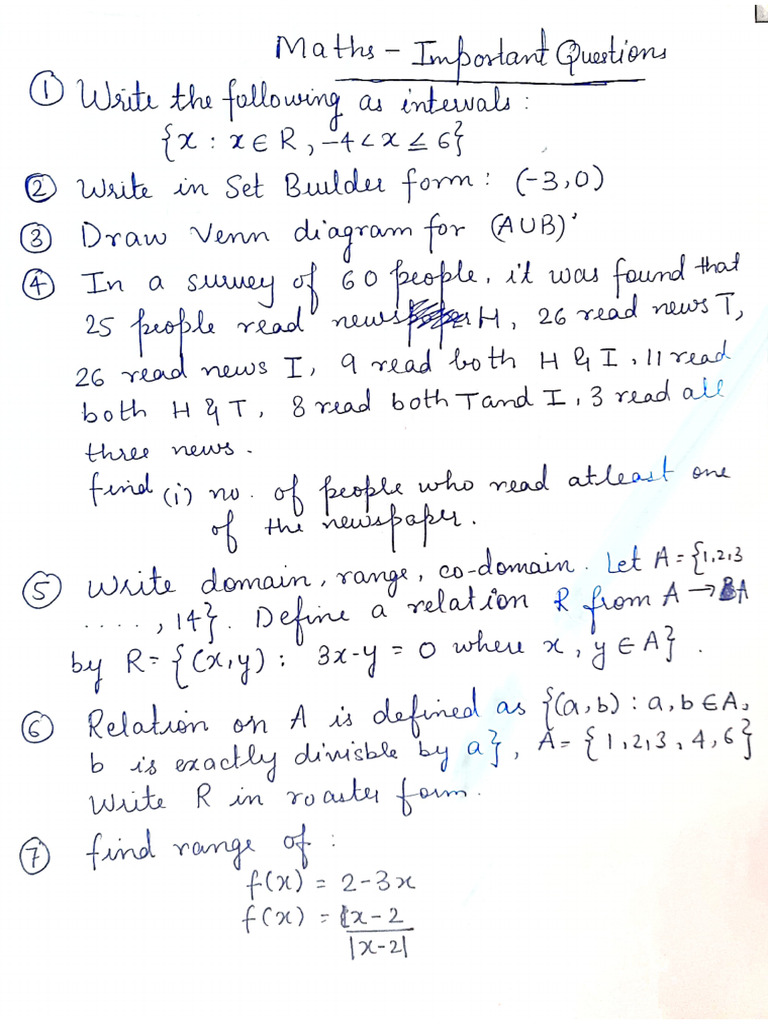 Maths - Important Questions
① Write the following as intervals :
{x : x ∈ R, -4 < x ≤ 6}
② Write in Set Builder form : (-3, 0)
③ Draw Venn diagram for (A∪B)'
④ In a survey of 60 people, it was found that
25 people read news H, 26 read news T,
26 read news I, 9 read both H & I, 11 read
both H & T, 8 read both T and I, 3 read all
three news.
find (i) no. of people who read atleast one
of the newspaper.
⑤ Write domain, range, co-domain. Let A = {1,2,3
...., 14}. Define a relation R from A → A
by R = {(x,y) : 3x-y = 0 where x, y ∈ A}.
⑥ Relation on A is defined as {(a,b) : a, b ∈ A,
b is exactly divisble by a}, A = {1,2,3,4,6}
Write R in roaster form.
⑦ find range of :
f(x) = 2-3x
f(x) = x-2
|x-2|